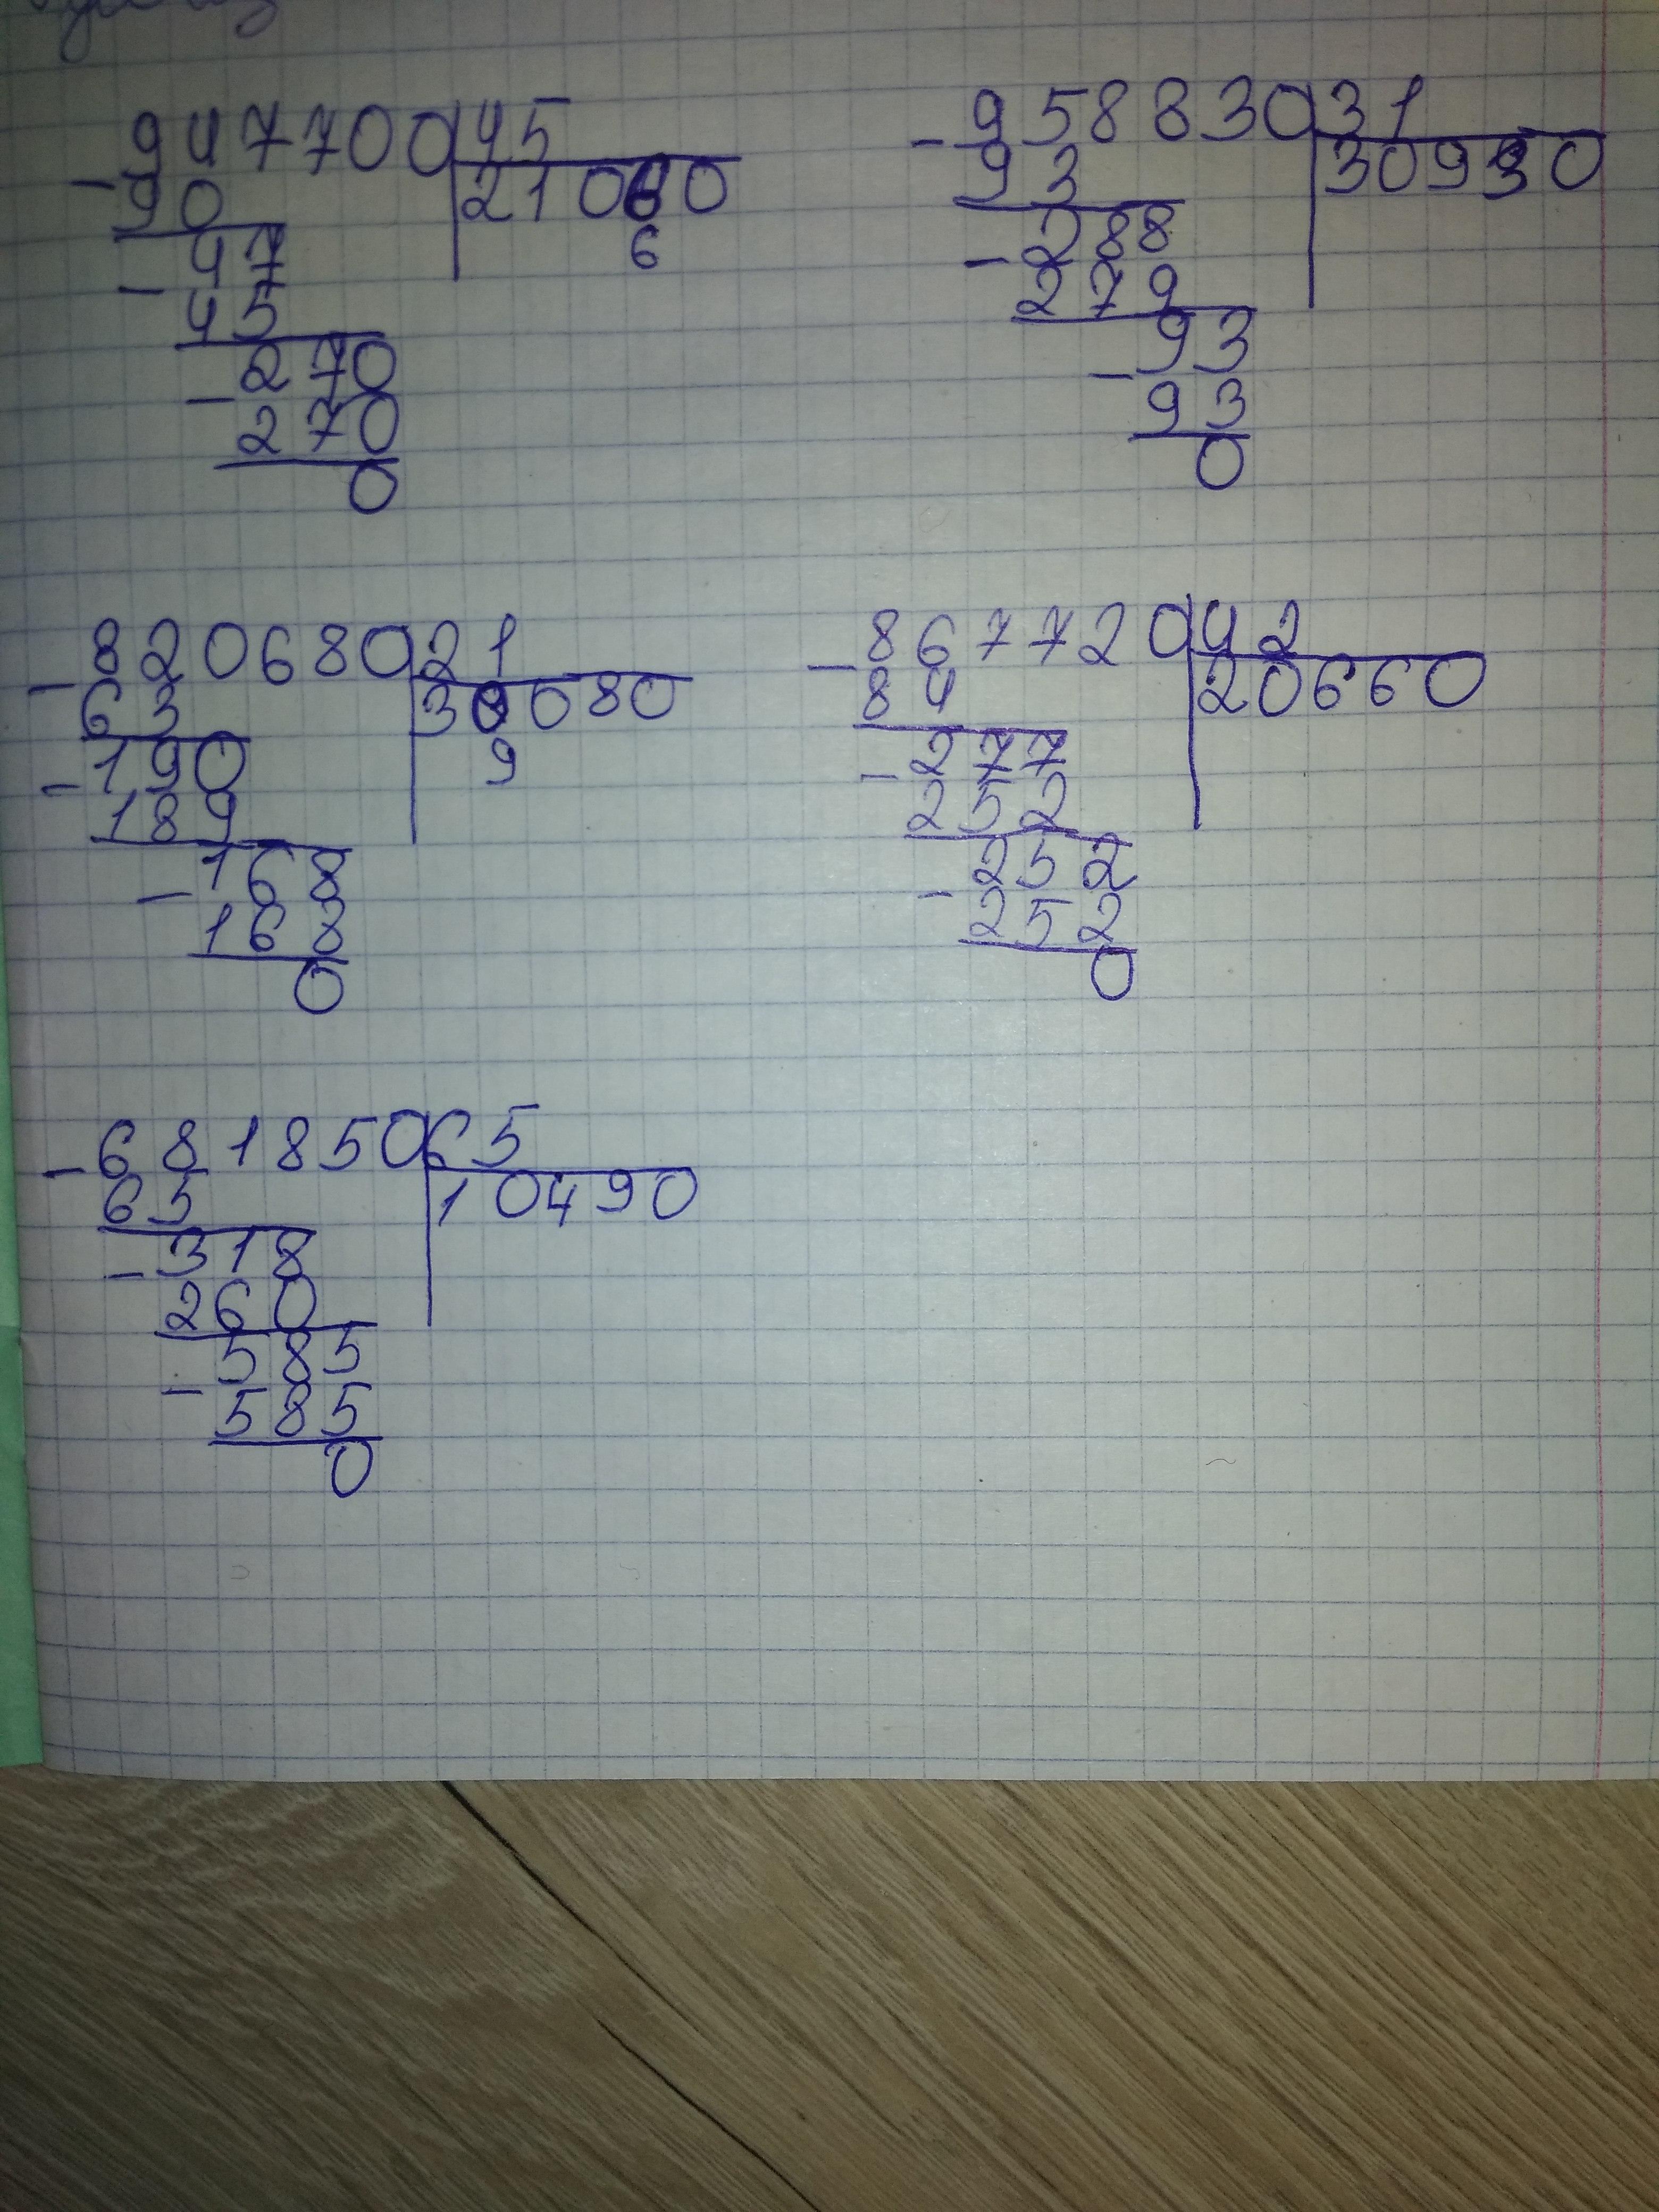 947700 45
- 90 21060
47 6
- 45
270
- 270
0
958830 31
- 93 30930
288
- 279
93
- 93
0
820680 21
- 63 39080
190 9
- 189
168
- 168
0
867720 42
- 84 20660
277
- 252
252
- 252
0
681850 65
- 65 10490
318
- 260
585
- 585
0